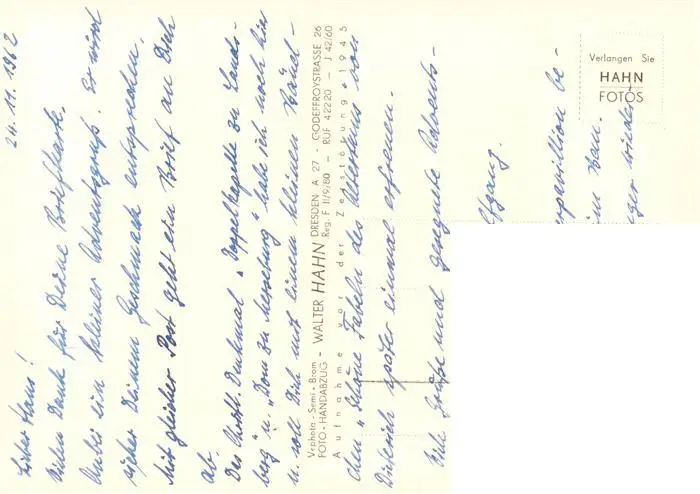 24.11.1962
Lieber Hans!
Vielen Dank für Deine Briefkarte.
Anbei ein kleiner Adventsgruß. Er wird
sicher Deinem Geschmack entsprechen.
Mit gleicher Post geht ein Brief an Dich
ab.
Das Christl. Denkmal „Doppelkapelle zu Lands-
berg" u. „Dom zu Merseburg" habe ich noch hier
u. will Dich mit einem kleinen Bänd-
chen „Schöne Fabeln des Altertums" von
Dieterich später einmal erfreuen.
Viele Grüße und gesegnete Advents-
lfgang.
ppavillion be-
im Bau.
ger wieder
Vrphoto - Semi - Brom
FOTO-HANDABZUG - WALTER HAHN DRESDEN A 27 - GODEFFROYSTRASSE 26
Reg. F 11/9/80 — RUF 42220 — J 42/60
Aufnahme vor der Zerstörung 1945
Verlangen Sie
HAHN
FOTOS